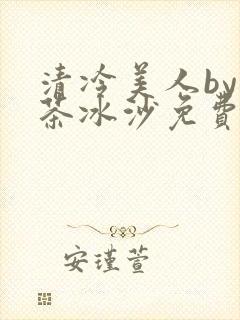 清冷美人by
茶冰沙免費
安瑾萱